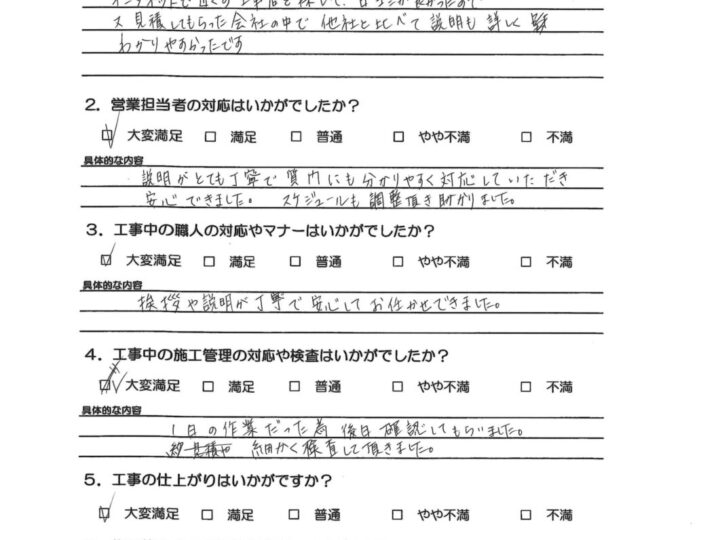 ス見積してもらった会社の中で他社と比べて説明も詳しく
わかりやすかったです
2. 営業担当者の対応はいかがでしたか？
大変満足 □ 満足 □ 普通 □ やや不満 □ 不満
具体的な内容
説明がとても丁寧で質問にも分かりやすく対応していただき
安心できました。 スケジュールも調整頂き助かりました。
3. 工事中の職人の対応やマナーはいかがでしたか？
大変満足 □ 満足 □ 普通 □ やや不満 □ 不満
具体的な内容
挨拶や説明が丁寧で安心してお任せできました。
4. 工事中の施工管理の対応や検査はいかがでしたか？
大変満足 □ 満足 □ 普通 □ やや不満 □ 不満
具体的な内容
1日の作業だった為後日確認してもらいました。
細かく検査して頂きました。
5. 工事の仕上がりはいかがですか？
大変満足 □ 満足 □ 普通 □ やや不満 □ 不満